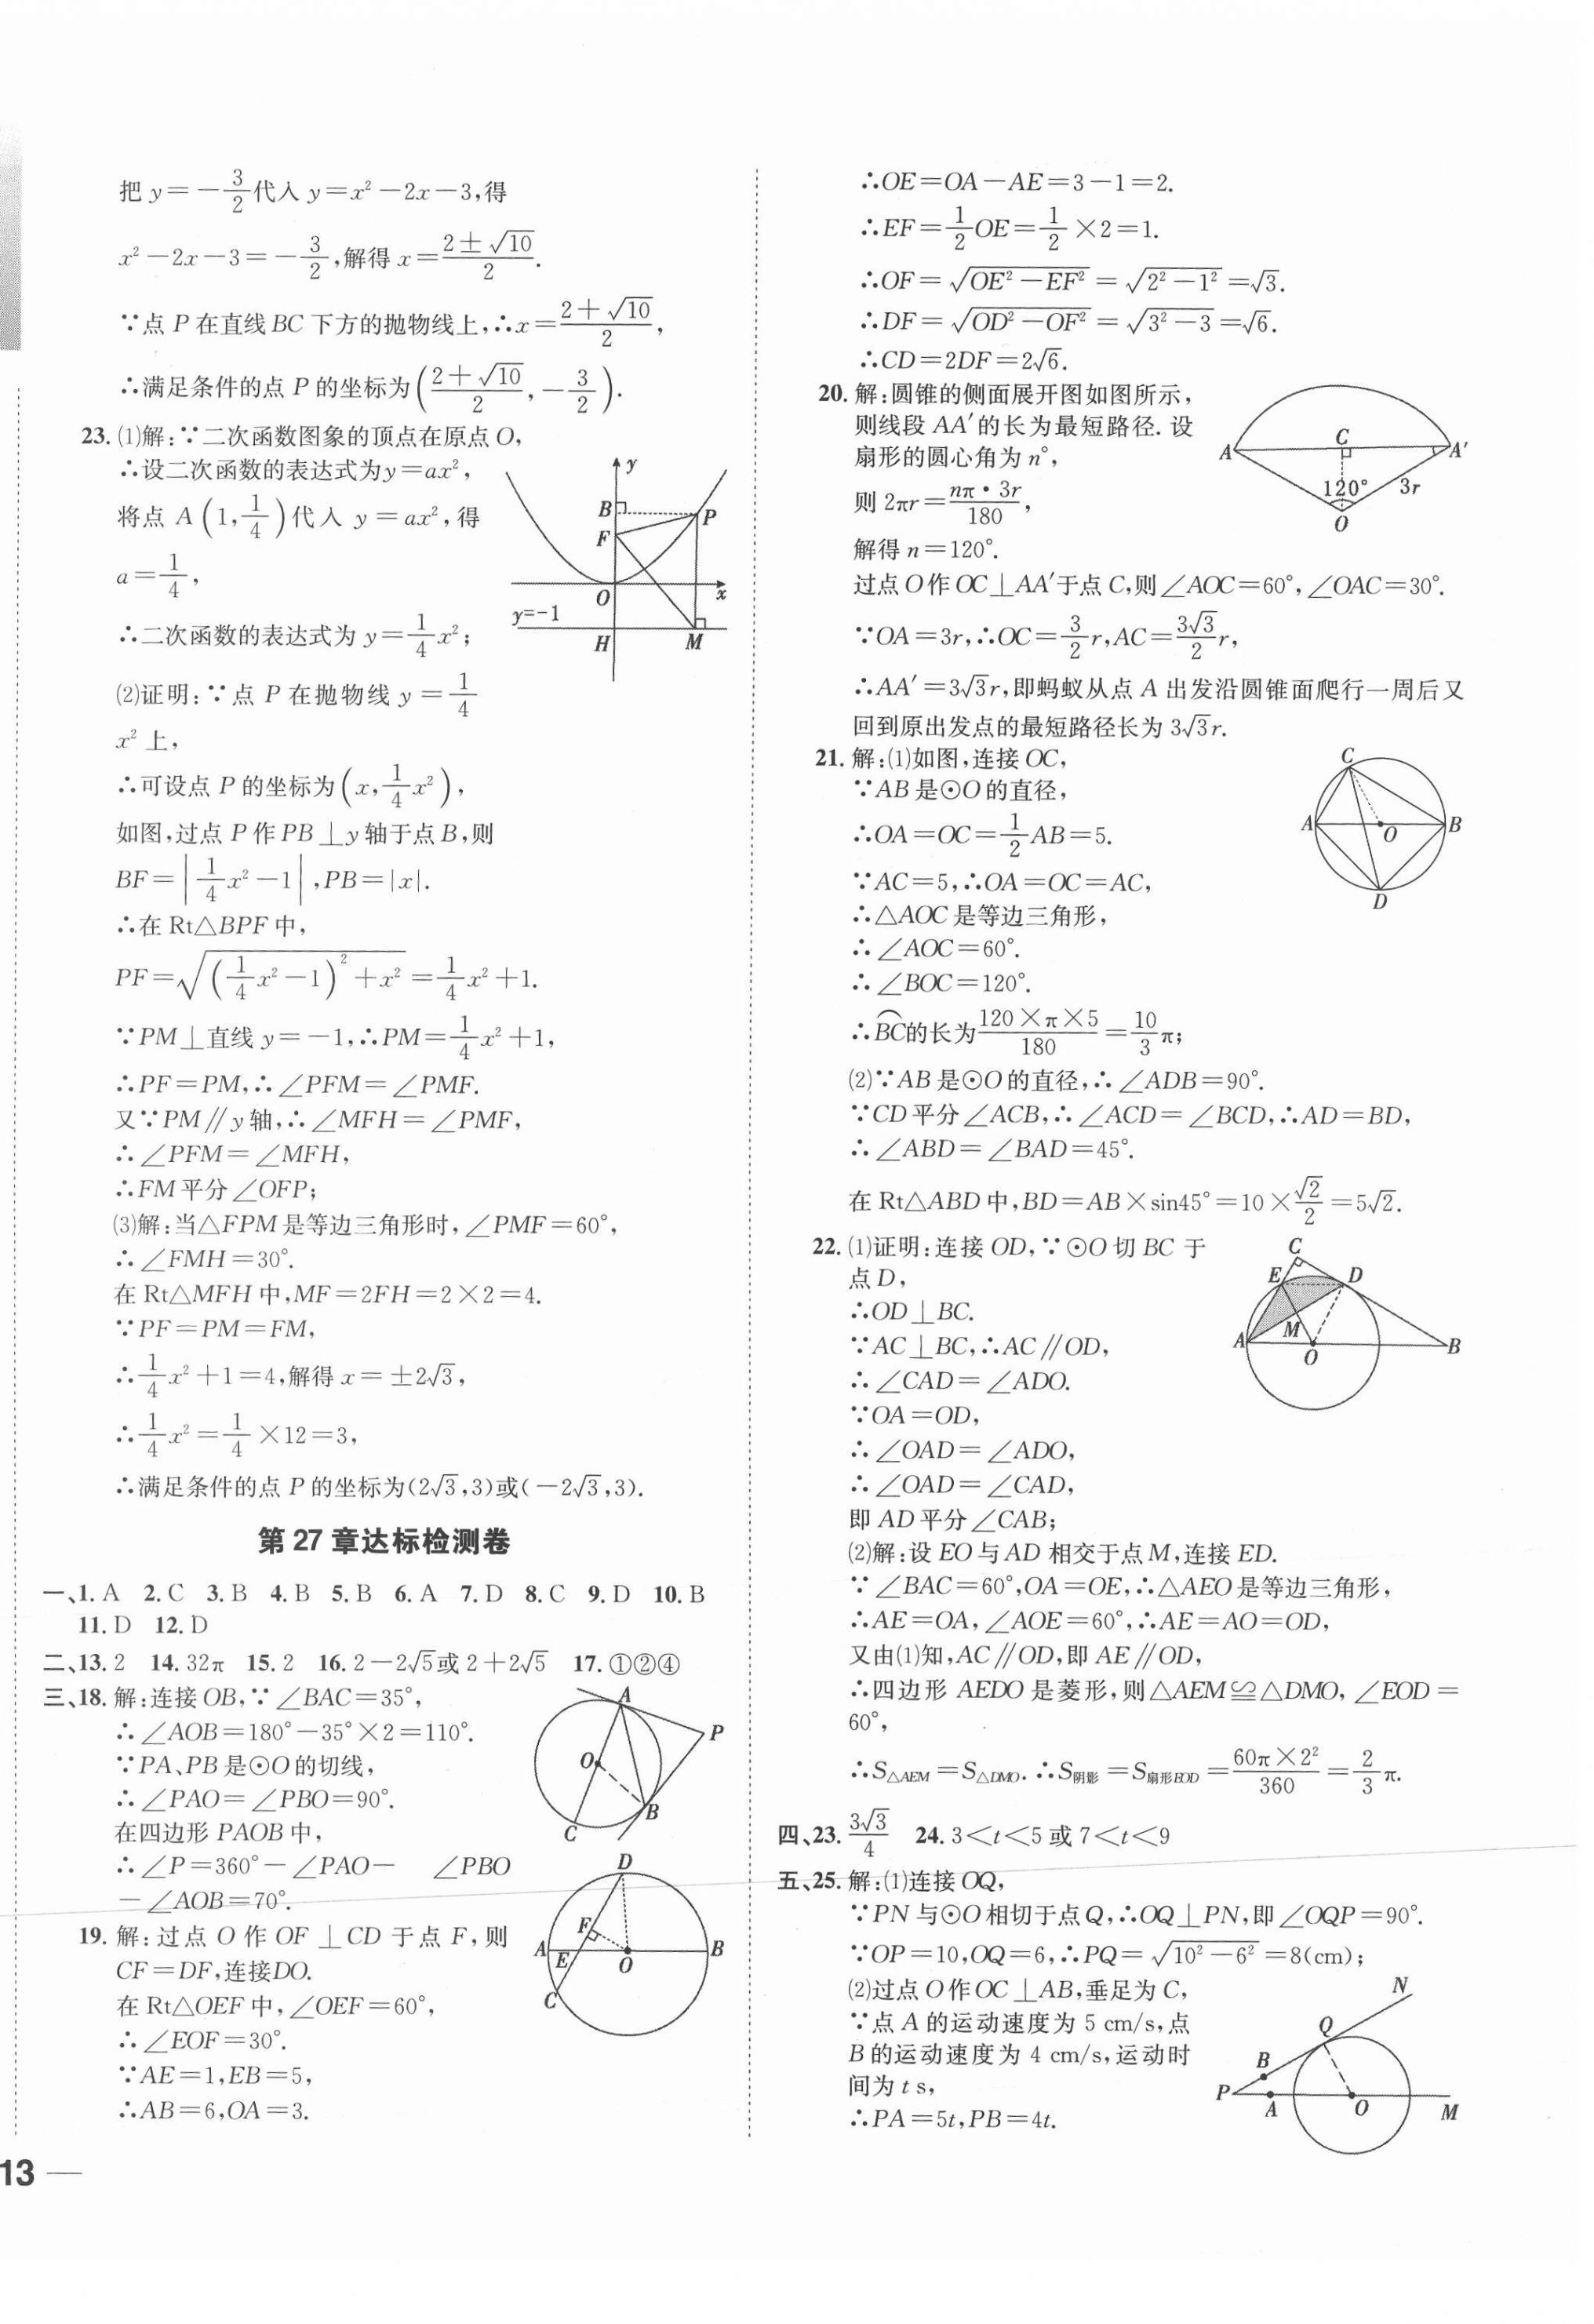 把 y=-3/2代入 y=x²-2x-3,得
x²-2x-3=-3/2,解得 x=(2±√10)/2.
∵点 P 在直线BC 下方的抛物线上,∴x=(2+√10)/2,
∴满足条件的点 P 的坐标为((2+√10)/2,-3/2).
23. (1)解:∵二次函数图象的顶点在原点 O,
∴设二次函数的表达式为y=ax²,
将点 A(1,1/4)代入 y=ax²,得
a=1/4,
∴二次函数的表达式为 y=1/4x²;
(2)证明:∵点 P 在抛物线 y=1/4
x² 上,
∴可设点 P 的坐标为(x,1/4x²),
如图,过点 P 作 PB⊥y 轴于点 B,则
BF=|1/4x²-1|,PB=|x|.
∴在 Rt△BPF 中,
PF=√((1/4x²-1)²+x²)=1/4x²+1.
∵PM⊥直线 y=-1,∴PM=1/4x²+1,
∴PF=PM,∴∠PFM=∠PMF.
又∵PM∥y 轴,∴∠MFH=∠PMF,
∴∠PFM=∠MFH,
∴FM 平分∠OFP;
(3)解:当△FPM 是等边三角形时,∠PMF=60°,
∴∠FMH=30°.
在 Rt△MFH 中,MF=2FH=2×2=4.
∵PF=PM=FM,
∴1/4x²+1=4,解得 x=±2√3,
∴1/4x²=1/4×12=3,
∴满足条件的点 P 的坐标为(2√3,3)或(-2√3,3).
y
B
P
F
O
x
y=-1
H
M
第 27 章达标检测卷
一、1. A 2. C 3. B 4. B 5. B 6. A 7. D 8. C 9. D 10. B
11. D 12. D
二、13. 2 14. 32π 15. 2 16. 2-2√5或 2+2√5 17. ①②④
三、18. 解:连接 OB,∵∠BAC=35°,
∴∠AOB=180°-35°×2=110°.
∵PA、PB 是⊙O 的切线,
∴∠PAO=∠PBO=90°.
在四边形 PAOB 中,
∴∠P=360°-∠PAO- ∠PBO
-∠AOB=70°.
A
P
O
B
C
19. 解:过点 O 作 OF⊥CD 于点 F,则
CF=DF,连接DO.
在 Rt△OEF 中,∠OEF=60°,
∴∠EOF=30°.
∵AE=1,EB=5,
∴AB=6,OA=3.
D
F
A
E
O
B
C
13
∴OE=OA-AE=3-1=2.
∴EF=1/2OE=1/2×2=1.
∴OF=√(OE²-EF²)=√(2²-1²)=√3.
∴DF=√(OD²-OF²)=√(3²-3)=√6.
∴CD=2DF=2√6.
20. 解:圆锥的侧面展开图如图所示,
则线段 AA′的长为最短路径. 设
扇形的圆心角为 n°,
则 2πr=(nπ·3r)/180,
解得 n=120°.
过点 O 作 OC⊥AA′于点 C,则∠AOC=60°,∠OAC=30°.
∵OA=3r,∴OC=3/2r,AC=(3√3)/2r,
∴AA′=3√3r,即蚂蚁从点 A 出发沿圆锥面爬行一周后又
回到原出发点的最短路径长为 3√3r.
C
A
A′
120°
3r
O
21. 解:(1)如图,连接 OC,
∵AB 是⊙O 的直径,
∴OA=OC=1/2AB=5.
∵AC=5,∴OA=OC=AC,
∴△AOC 是等边三角形,
∴∠AOC=60°.
∴∠BOC=120°.
∴⌒BC的长为(120×π×5)/180=10/3π;
(2)∵AB 是⊙O 的直径,∴∠ADB=90°.
∵CD 平分∠ACB,∴∠ACD=∠BCD,∴AD=BD,
∴∠ABD=∠BAD=45°.
在 Rt△ABD 中,BD=AB×sin45°=10×√2/2=5√2.
C
A
O
B
D
22. (1)证明:连接 OD,∵⊙O 切 BC 于
点 D,
∴OD⊥BC.
∵AC⊥BC,∴AC∥OD,
∴∠CAD=∠ADO.
∵OA=OD,
∴∠OAD=∠ADO,
∴∠OAD=∠CAD,
即 AD 平分∠CAB;
(2)解:设 EO 与 AD 相交于点 M,连接 ED.
∵∠BAC=60°,OA=OE,∴△AEO 是等边三角形,
∴AE=OA,∠AOE=60°,∴AE=AO=OD,
又由(1)知,AC∥OD,即 AE∥OD,
∴四边形 AEDO 是菱形,则△AEM≌△DMO,∠EOD=
60°,
∴S△AEM=S△DMO. ∴S阴影=S扇形EOD=(60π×2²)/360=2/3π.
C
E
D
A
M
O
B
四、23. (3√3)/4 24. 3<t<5 或 7<t<9
五、25. 解:(1)连接 OQ,
∵PN 与⊙O 相切于点 Q,∴OQ⊥PN,即∠OQP=90°.
∵OP=10,OQ=6,∴PQ=√(10²-6²)=8(cm);
(2)过点 O 作 OC⊥AB,垂足为 C,
∵点 A 的运动速度为 5 cm/s,点
B 的运动速度为 4 cm/s,运动时
间为 t s,
∴PA=5t,PB=4t.
N
Q
B
P
A
O
M